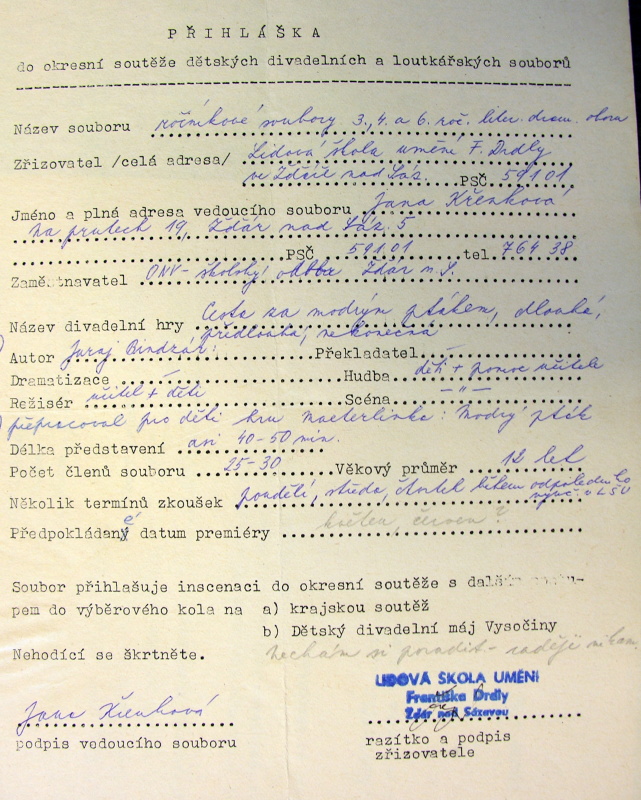 PŘIHLÁŠKA
do okresní soutěže dětských divadelních a loutkářských souborů
Název souboru ročníkové soubory 3., 4. a 6. roč. liter. dram. oboru
Zřizovatel /celá adresa/ Lidová škola umění F. Drdly
ve Žďáře nad Sáz. PSČ 591 01
Jméno a plná adresa vedoucího souboru Jana Křenková
Na prutech 19, Žďár nad Sáz. 5
PSČ 591 01 tel. 764 38
Zaměstnavatel ONV - školský odbor Žďár n. S.
Název divadelní hry Cesta za modrým ptákem, dlouhá,
přidlouhá, nekonečná
Autor Juraj Bindzár: Překladatel -
Dramatizace - Hudba děti + pomoc učitele
Režisér učitel + děti Scéna - " -
přepracoval pro děti hru Maeterlincka: Modrý pták
Délka představení asi 40-50 min.
Počet členů souboru 25-30 Věkový průměr 12 let
Několik termínů zkoušek pondělí, středa, čtvrtek během odpoledního
vyuč. v LŠU
Předpokládané datum premiéry květen, červen?
Soubor přihlašuje inscenaci do okresní soutěže s dalším postu-
pem do výběrového kola na a) krajskou soutěž
b) Dětský divadelní máj Vysočiny
Nehodící se škrtněte. Nechám si poradit - raději nikam.
LIDOVÁ ŠKOLA UMĚNÍ
Františka Drdly
Žďár nad Sázavou
Jana Křenková
podpis vedoucího souboru
razítko a podpis
zřizovatele